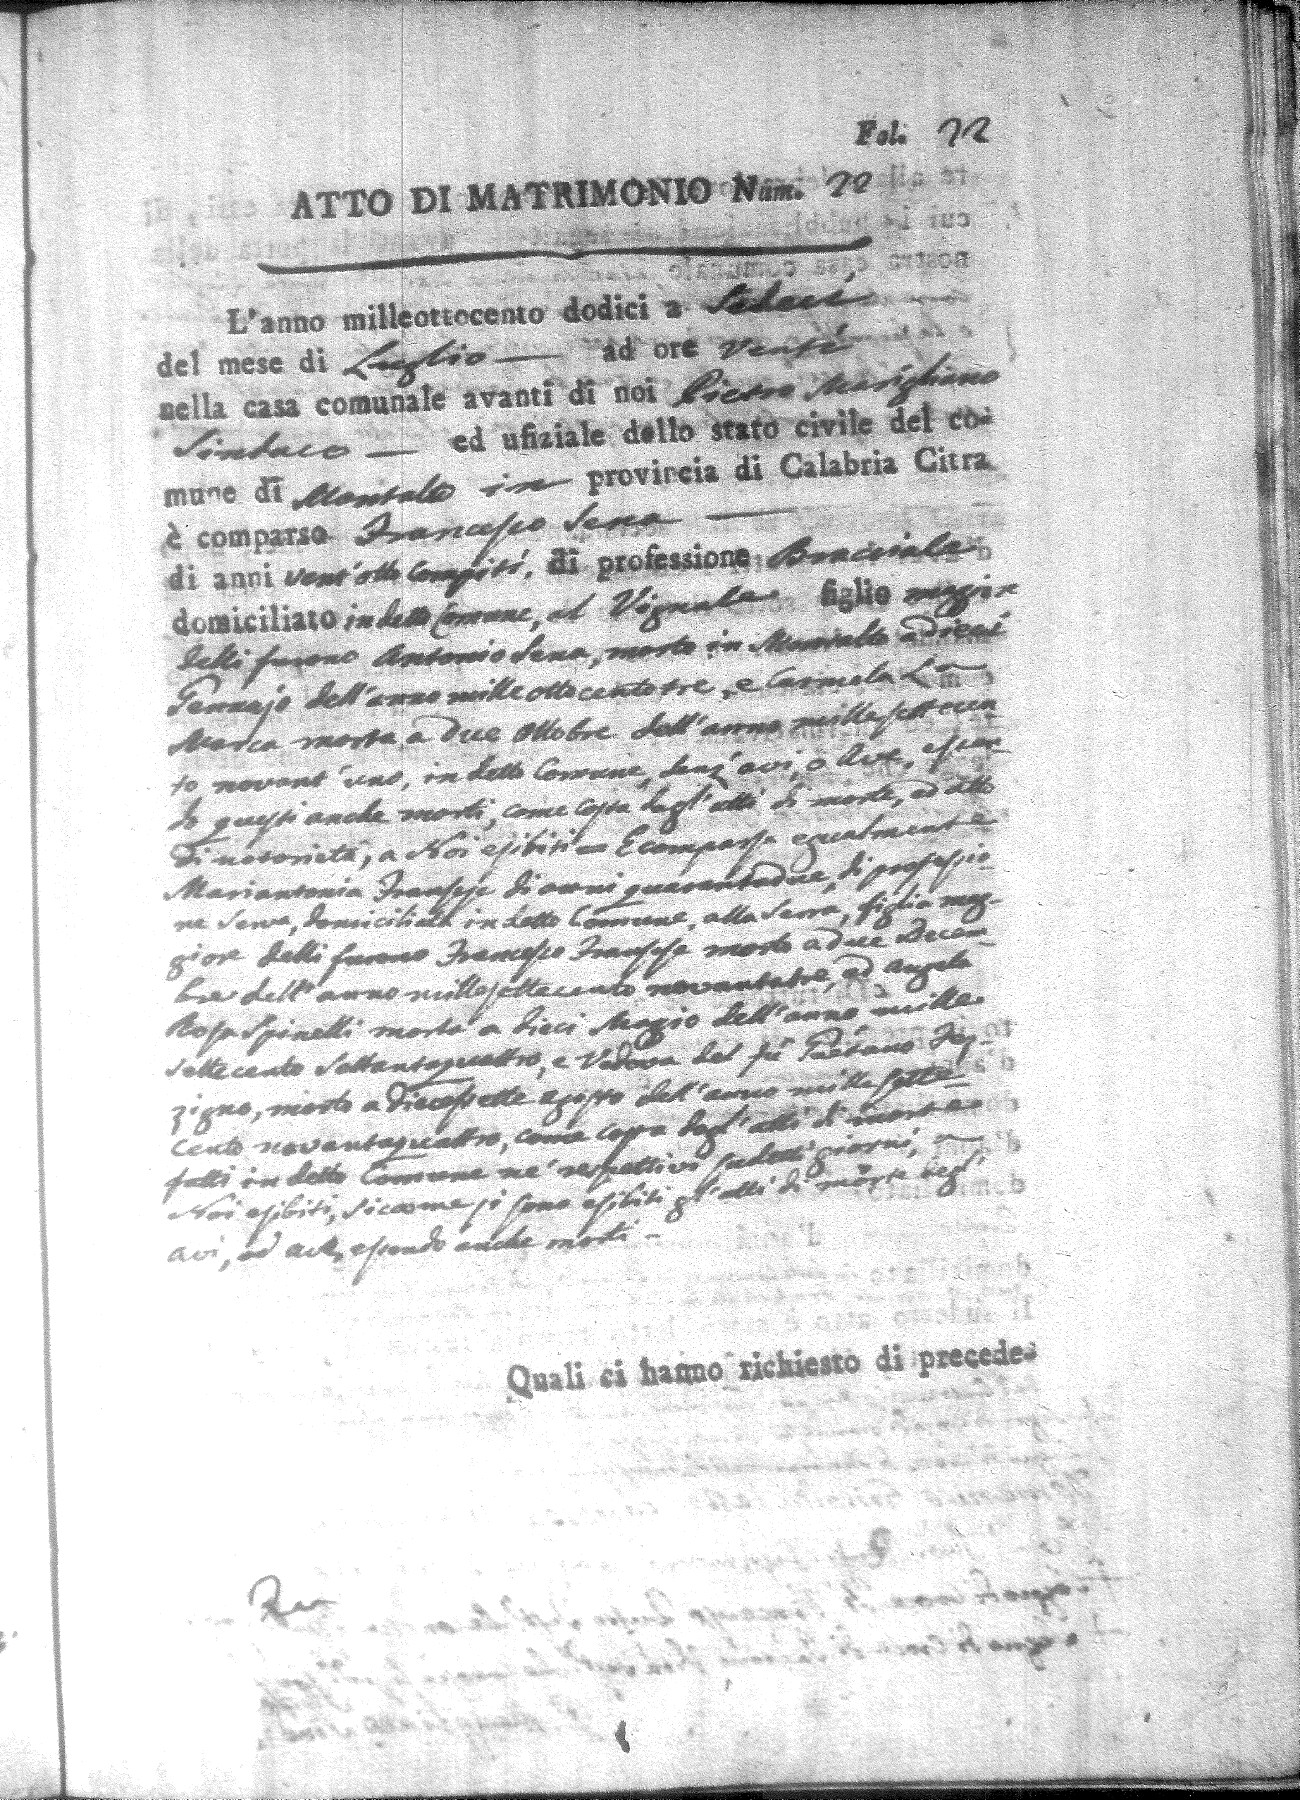 Fol. 22
ATTO DI MATRIMONIO Num. 22
L'anno milleottocento dodici a Sedeci
del mese di Luglio — ad ore venti
nella casa comunale avanti di noi Pietro Marigliano
Sindaco — ed ufiziale dello stato civile del co-
mune di Montalto in provincia di Calabria Citra
è comparso Francesco Sena —
di anni vent'otto compiti, di professione Bracciale
domiciliato in detto Comune, al Vignale figlio maggiore
delli furono Antonio Sena, morto in Montalto a dieci
Gennajo dell'anno mille ottocento tre, e Carmela La
Marca morta a due Ottobre dell'anno mille settecen
to novant'uno, in detto Comune, senz'avi, o Ave, essen-
do questi anche morti, come costa dagl'atti di morte, ed atto
di notorietà, a Noi esibiti = E comparsa egualmente
Mariantonia Fransese di anni quarantadue, di professio-
ne Serva, domiciliata in detto Comune, alla Serra, figlia mag-
giore delli furono Francesco Fransese morto a due Decem-
bre dell'anno mille settecento novantatre, ed Angela
Rosa Spinelli morta a dieci Maggio dell'anno mille
settecento settantaquattro, e Vedova del fu Gaetano
morto a Diecessette agosto dell'anno mille sette
cento novantaquattro, come costa dagl'atti di morte
fatti in detto Comune ne' respettivi sudetti giorni, a
Noi esibiti, siccome si sono esibiti gl'atti di morte degl'
avi, ed ave, essendo anche morti =
Quali ci hanno richiesto di precede-